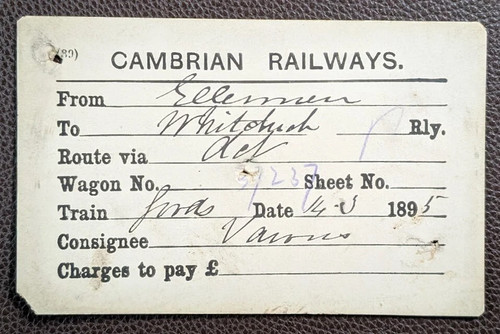 (89)
CAMBRIAN RAILWAYS.
From Ellesmere
To Whitchurch Rly.
Route via
Wagon No. 37237 Sheet No.
Train Goods Date 14 3 1895
Consignee Various
Charges to pay £